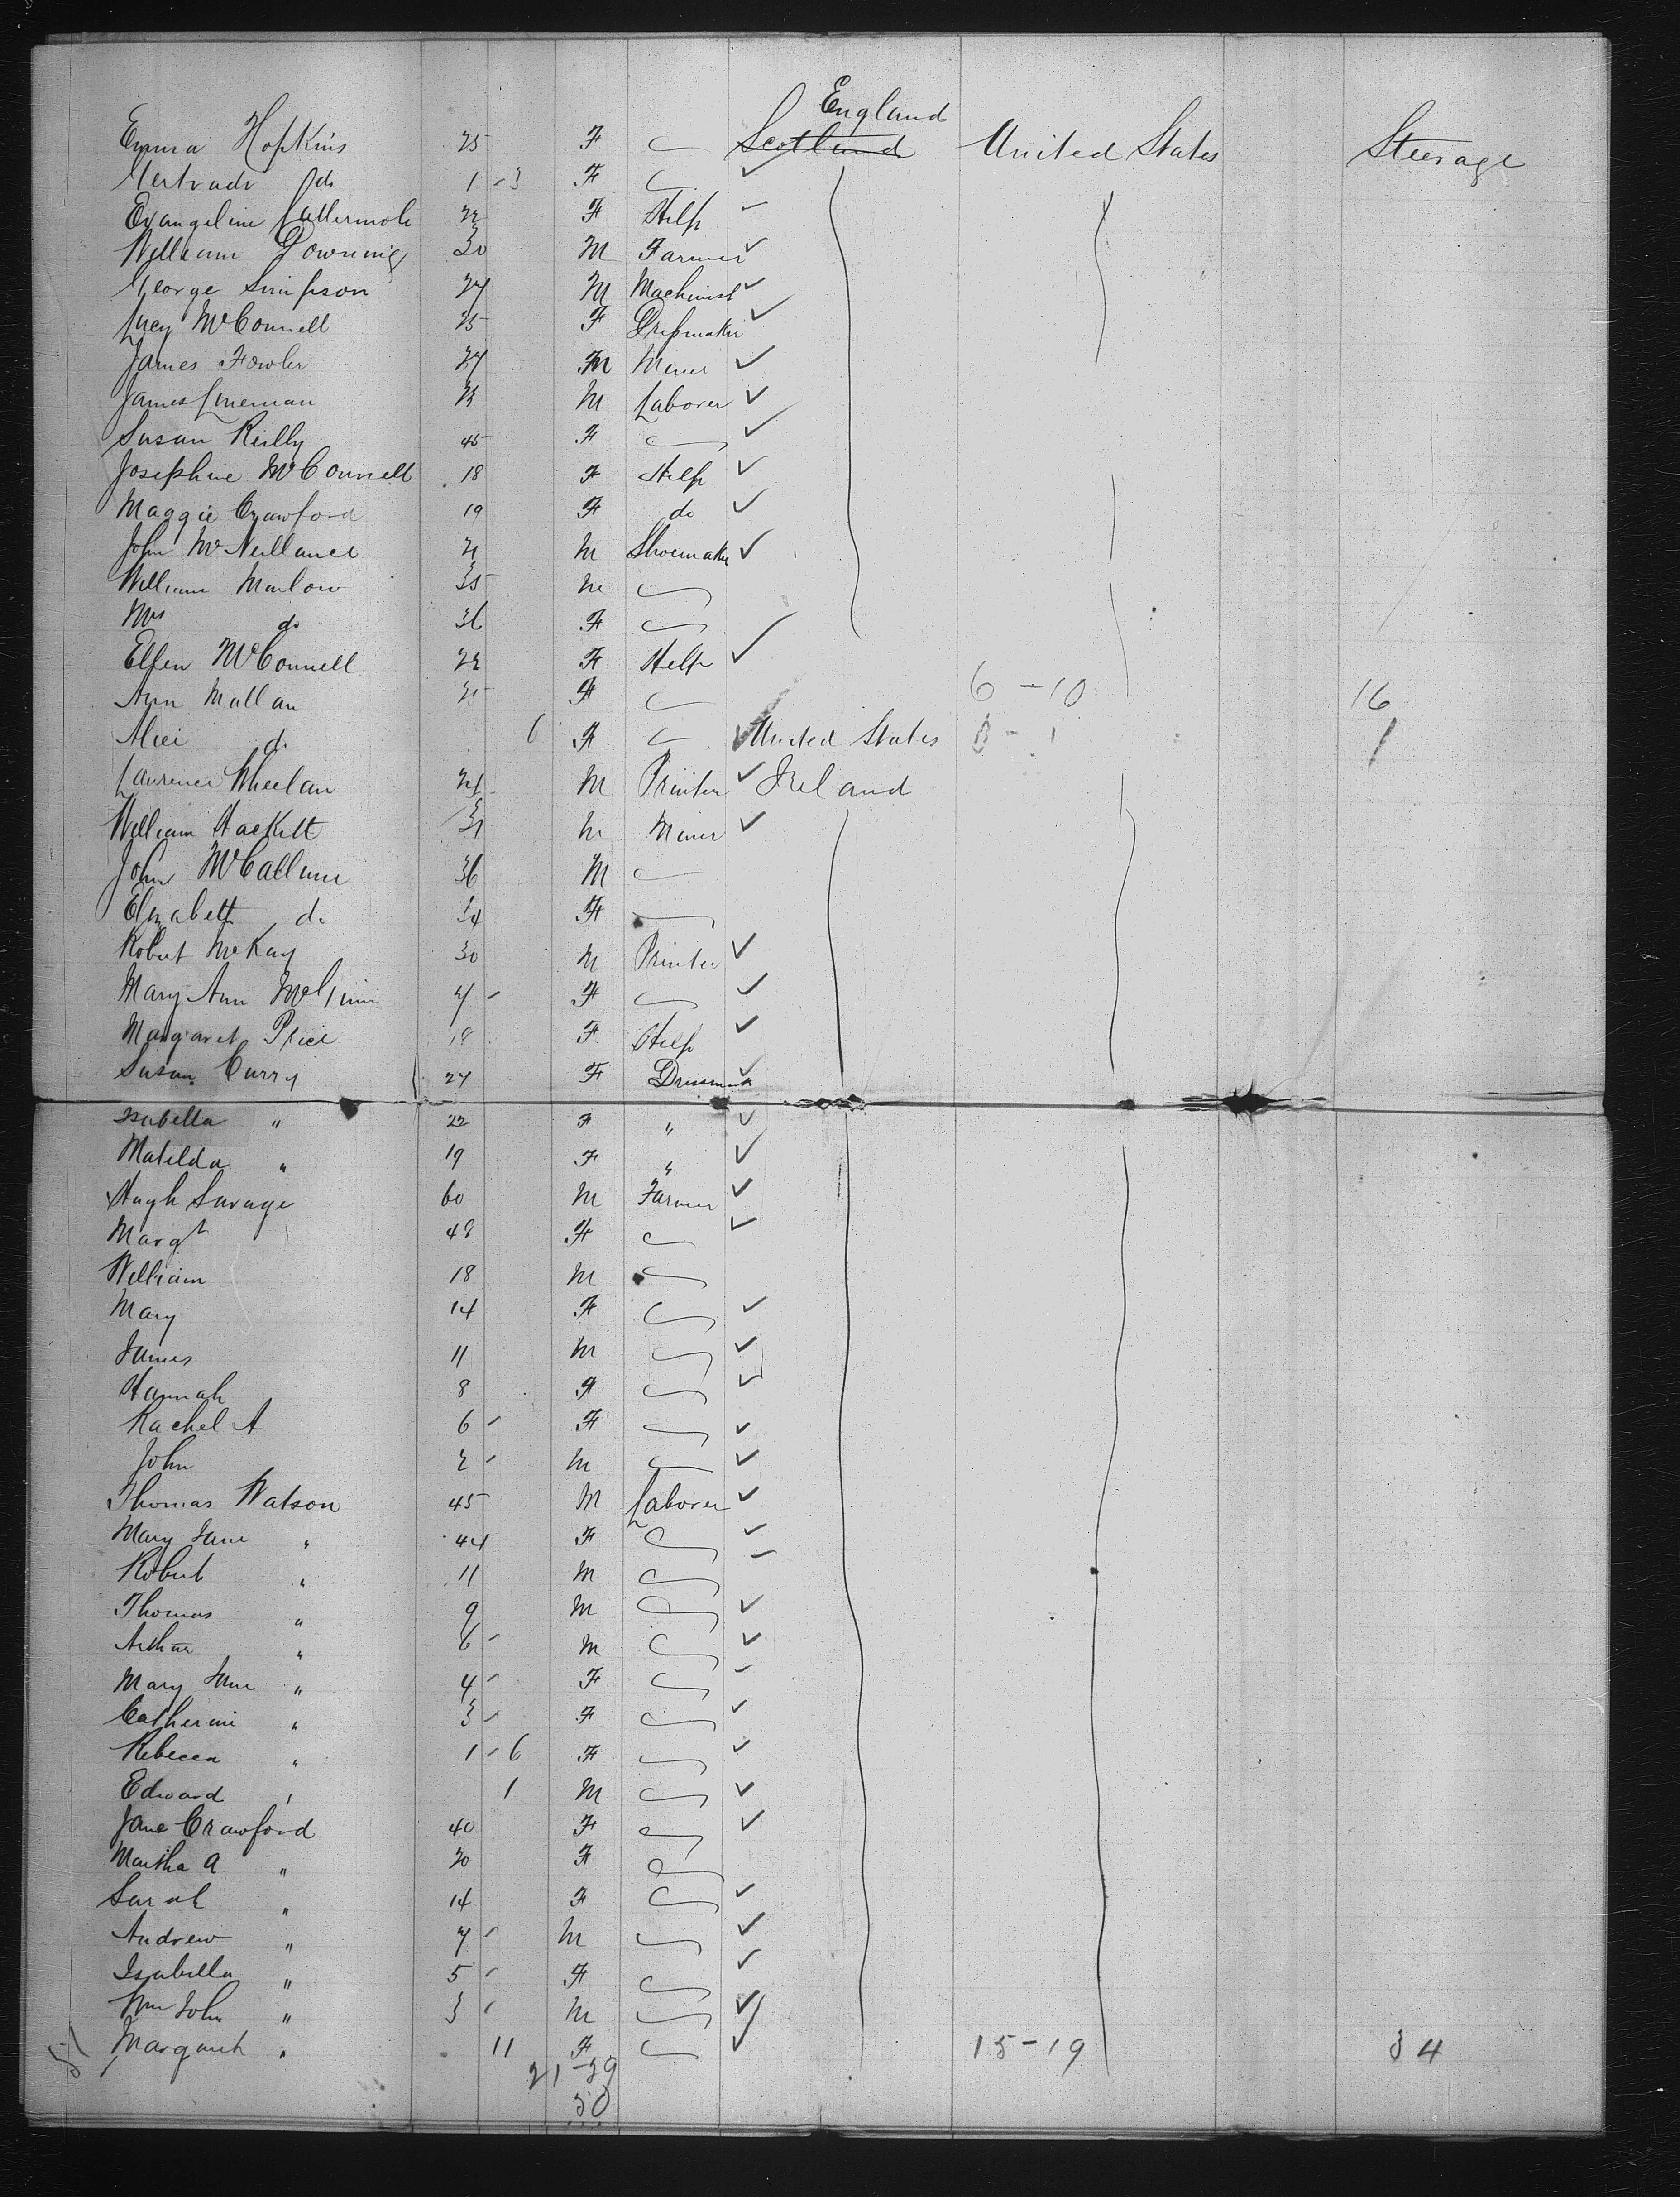 England
Emma Hopkins 25 F Scotland United States Steerage
Gertrude do 1 - 3 F
Evangeline Cattermole 22 F Help
William Downing 30 M Farmer
George Simpson 27 M Machinist
Lucy McConnell 25 F Dressmaker
James Fowler 27 M Miner
James Lineman M Laborer
Susan Reilly 45 F
Josephine McConnell 18 F Help
Maggie Crawford 19 F do
John 21 M Shoemaker
William Marlow 35 M
Mrs do 36 F
Ellen McConnell 22 F Help
Ann Mallan 25 F 6 - 10 16
Alice do 6 F United States 0 - 1 1
Laurence Wheelan M Printer Ireland
William Hackett M Miner
John McCallum 36 M
Elizabeth do 34 F
Robert McKay 30 M Printer
Mary Ann 7 - F
Margaret Price 18 F Help
Susan Curry 24 F Dressmak
Isabella " 22 F "
Matilda " 19 F "
Hugh Savage 60 M Farmer
Margt 48 F
William 18 M
Mary 14 F
James 11 M
Hannah 8 F
Rachel A 6 - F
John 2 - M
Thomas Watson 45 M Laborer
Mary Jane " 44 F
Robert " 11 M
Thomas " 9 M
Arthur " 6 - M
Mary Jane " 4 - F
Catherine " 3 - F
Rebecca " 1 - 6 F
Edward " 1 M
Jane Crawford 40 F
Martha A " 20 F
Sarah " 14 F
Andrew " 7 - M
Isabella " 5 - F
Wm John " 3 - M
51 Margaret " 11 F 15 - 19 34
21 - 29
50